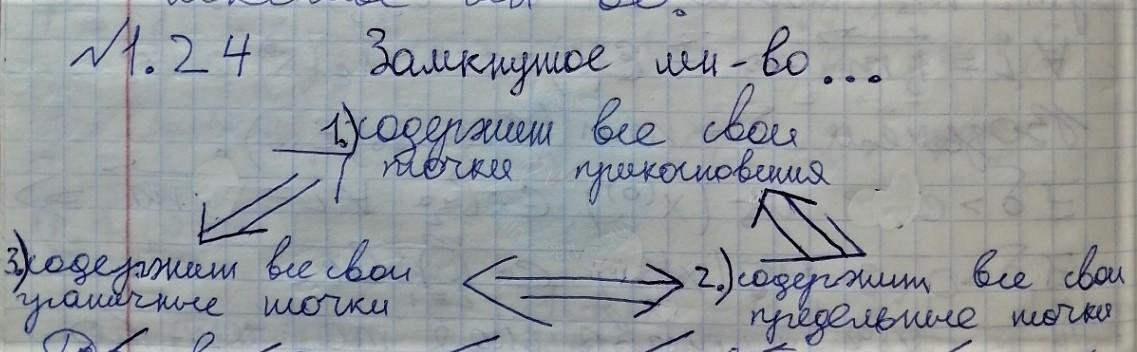 №1.24 Замкнутое мн-во...
1.) содержит все свои
точки прикосновения
3.) содержит все свои
граничные точки
2.) содержит все свои
предельные точки